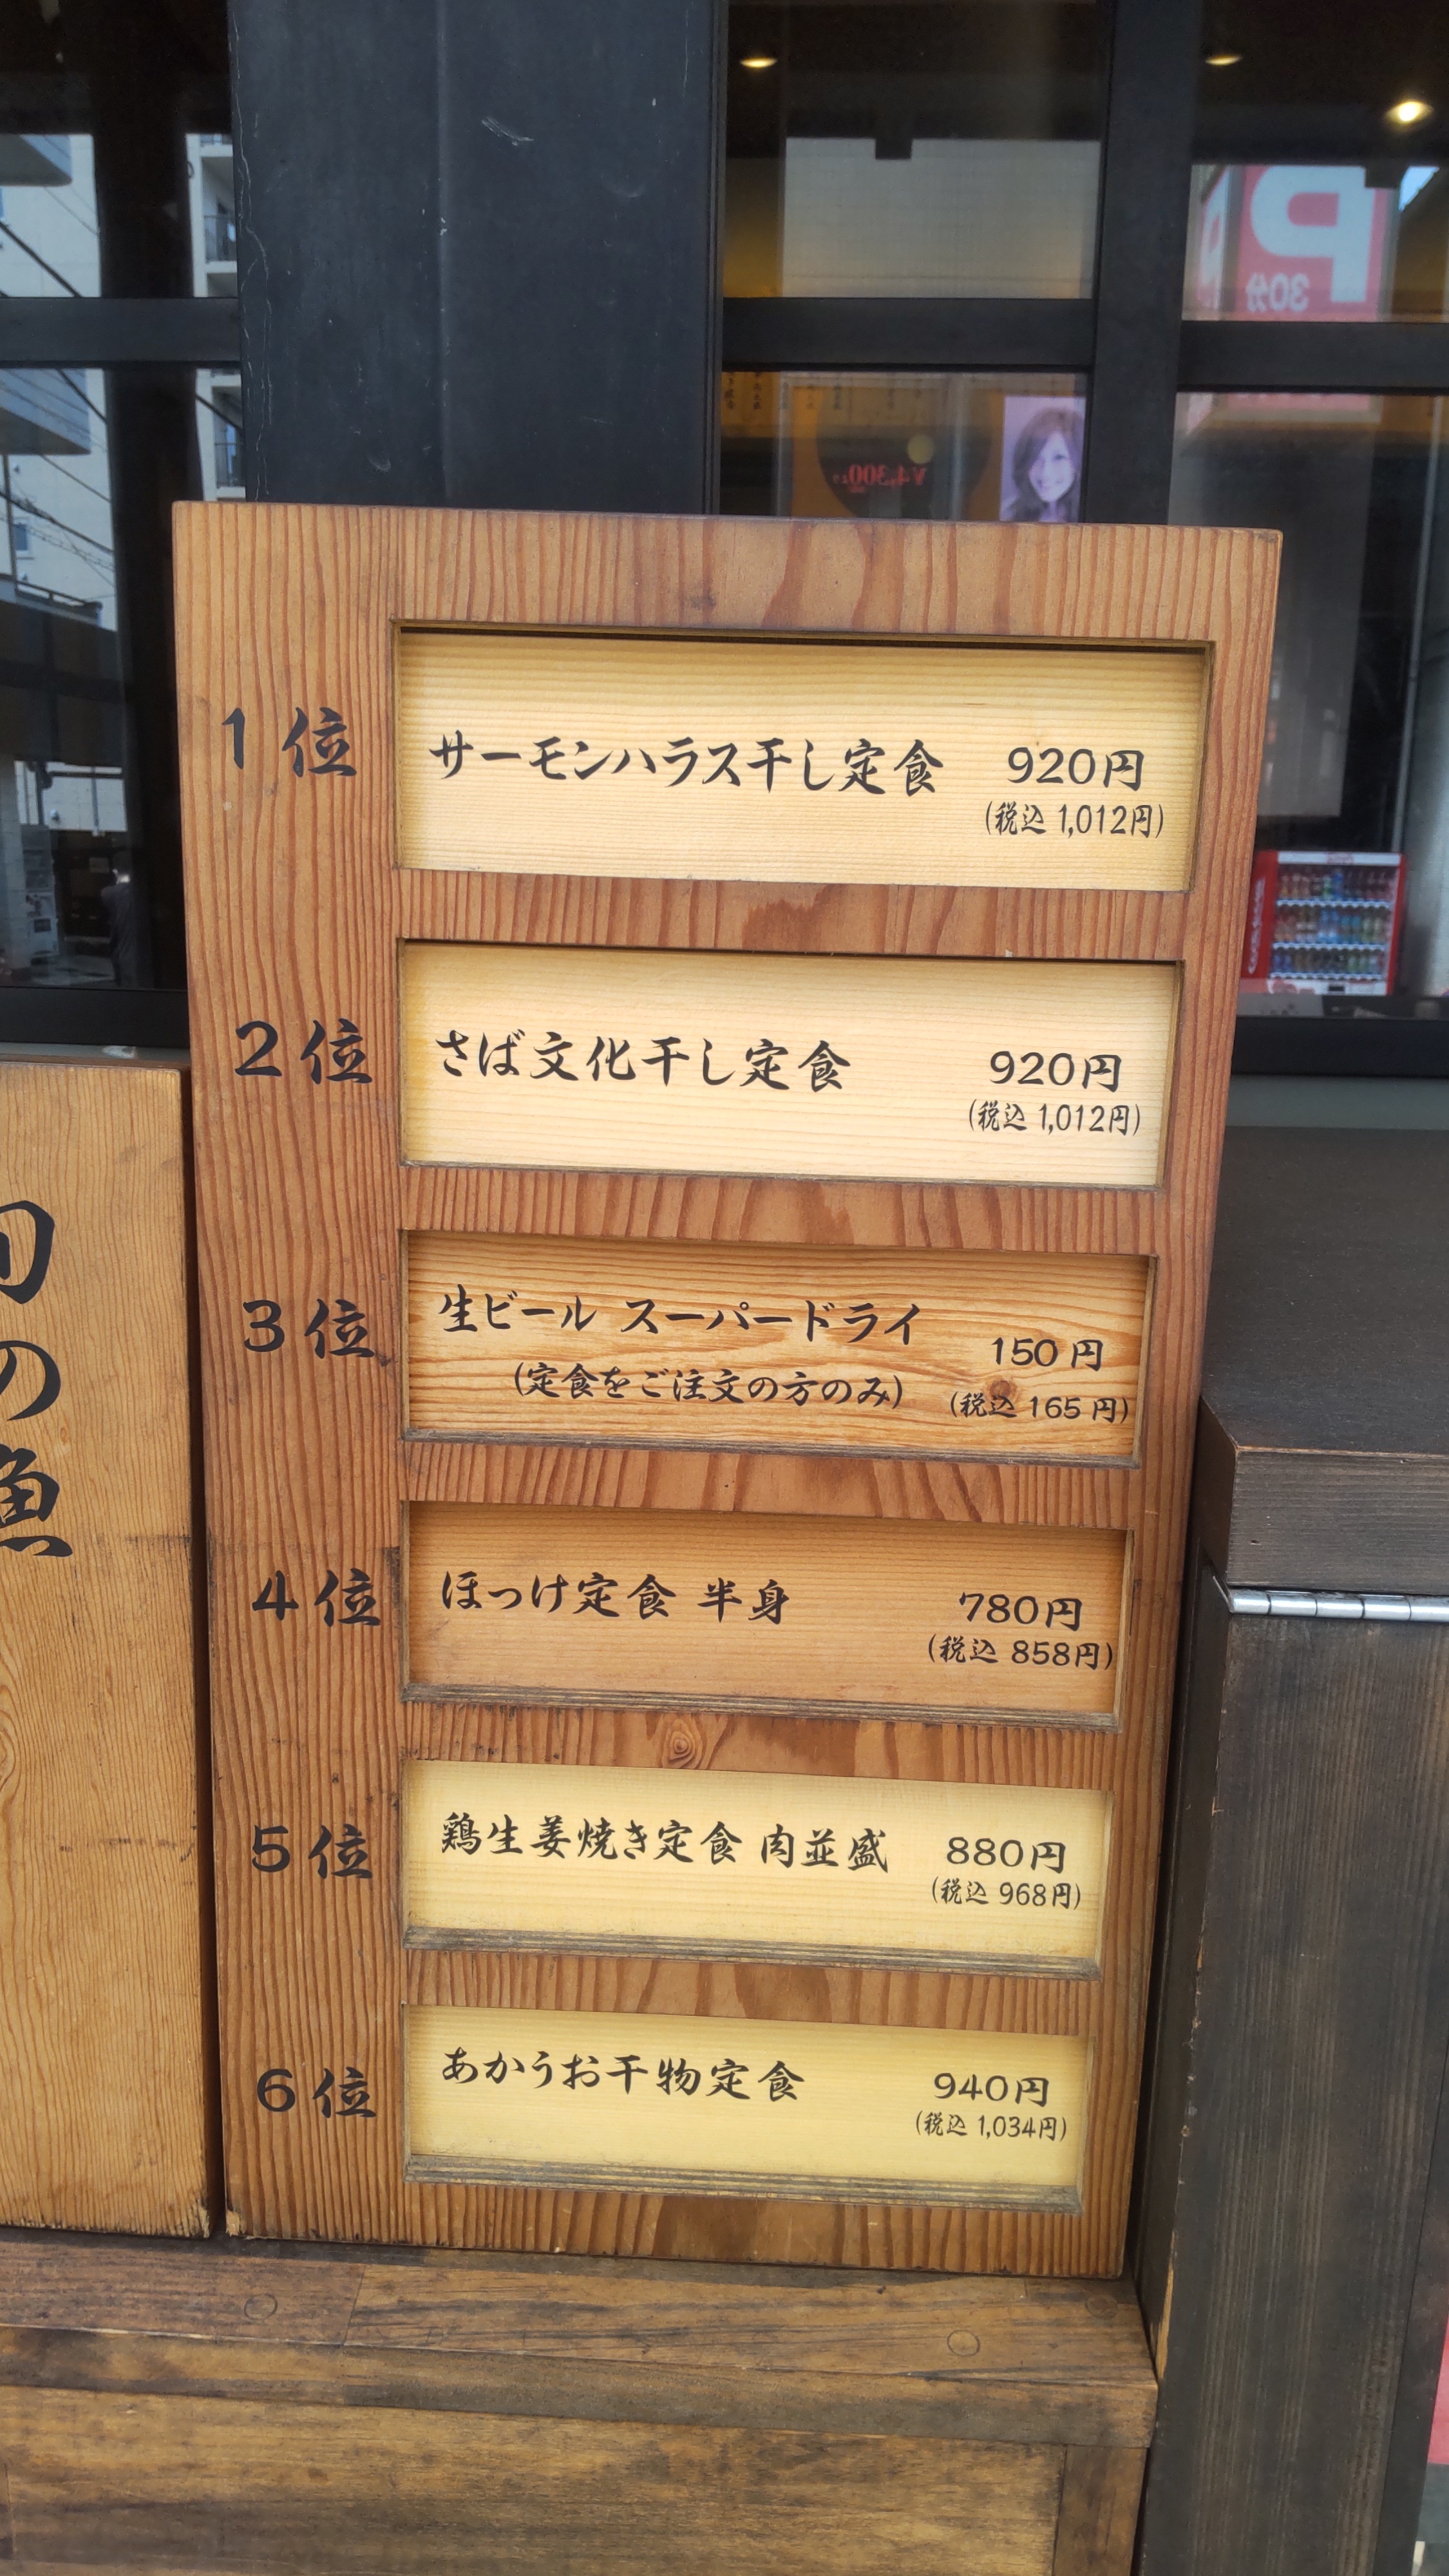 1位
サーモンハラス干し定食 920円
(税込 1,012円)
2位
さば文化干し定食 920円
(税込 1,012円)
3位
生ビール スーパードライ 150円
(定食をご注文の方のみ) (税込 165円)
4位
ほっけ定食 半身 780円
(税込 858円)
5位
鶏生姜焼き定食 肉並盛 880円
(税込 968円)
6位
あかうお干物定食 940円
(税込 1,034円)
旬の魚
P
30分
¥4,300